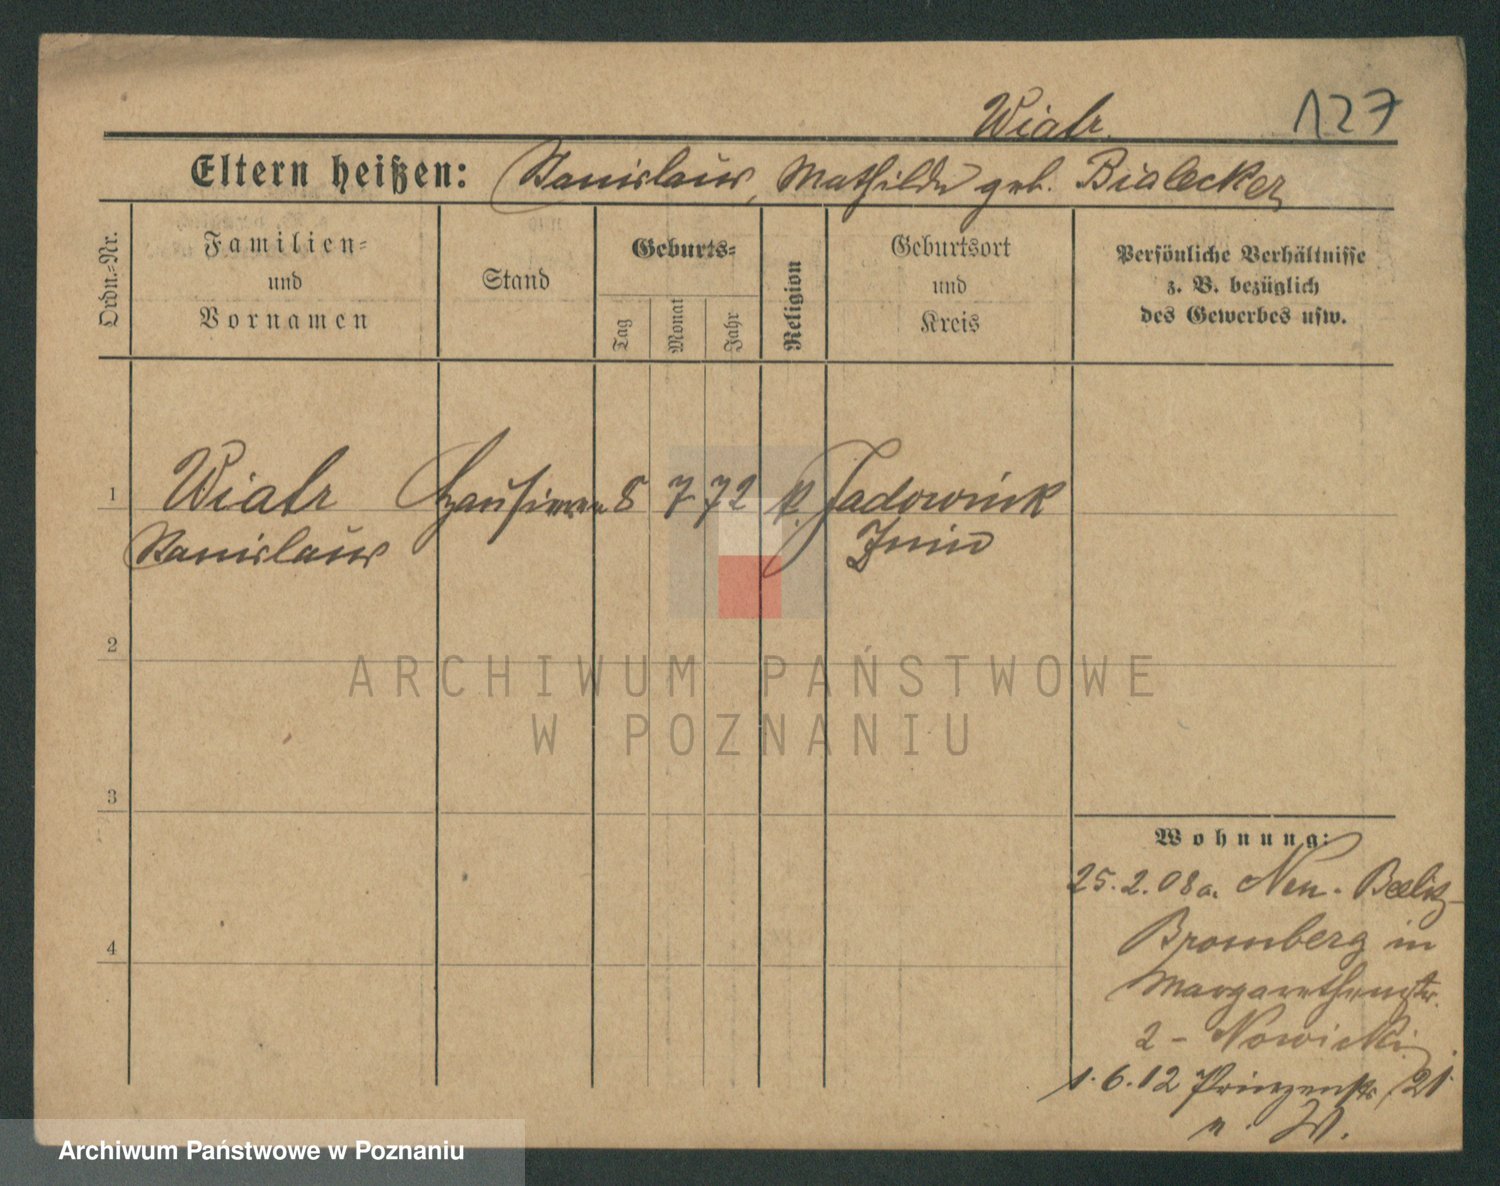 Wiatr.
127
Eltern heißen: Stanislaus, Mathilde geb. Bialecker
Ordn.-Nr.
Familien-
und
Vornamen
Stand
Geburts-
Tag
Monat
Jahr
Religion
Geburtsort
und
Kreis
Persönliche Verhältnisse
z. B. bezüglich
des Gewerbes usw.
1 Wiatr Hausierer 8 7 72 k. Jadownik
Stanislaus Znin
2
3
4
ARCHIWUM PAŃSTWOWE
W POZNANIU
Wohnung:
25.2.08 a. Neu-Beelitz-
Bromberg in
Margarethenstr.
2 - Nowicki.
1.6.12 Prinzenstr. 21
n. W.
Archiwum Państwowe w Poznaniu